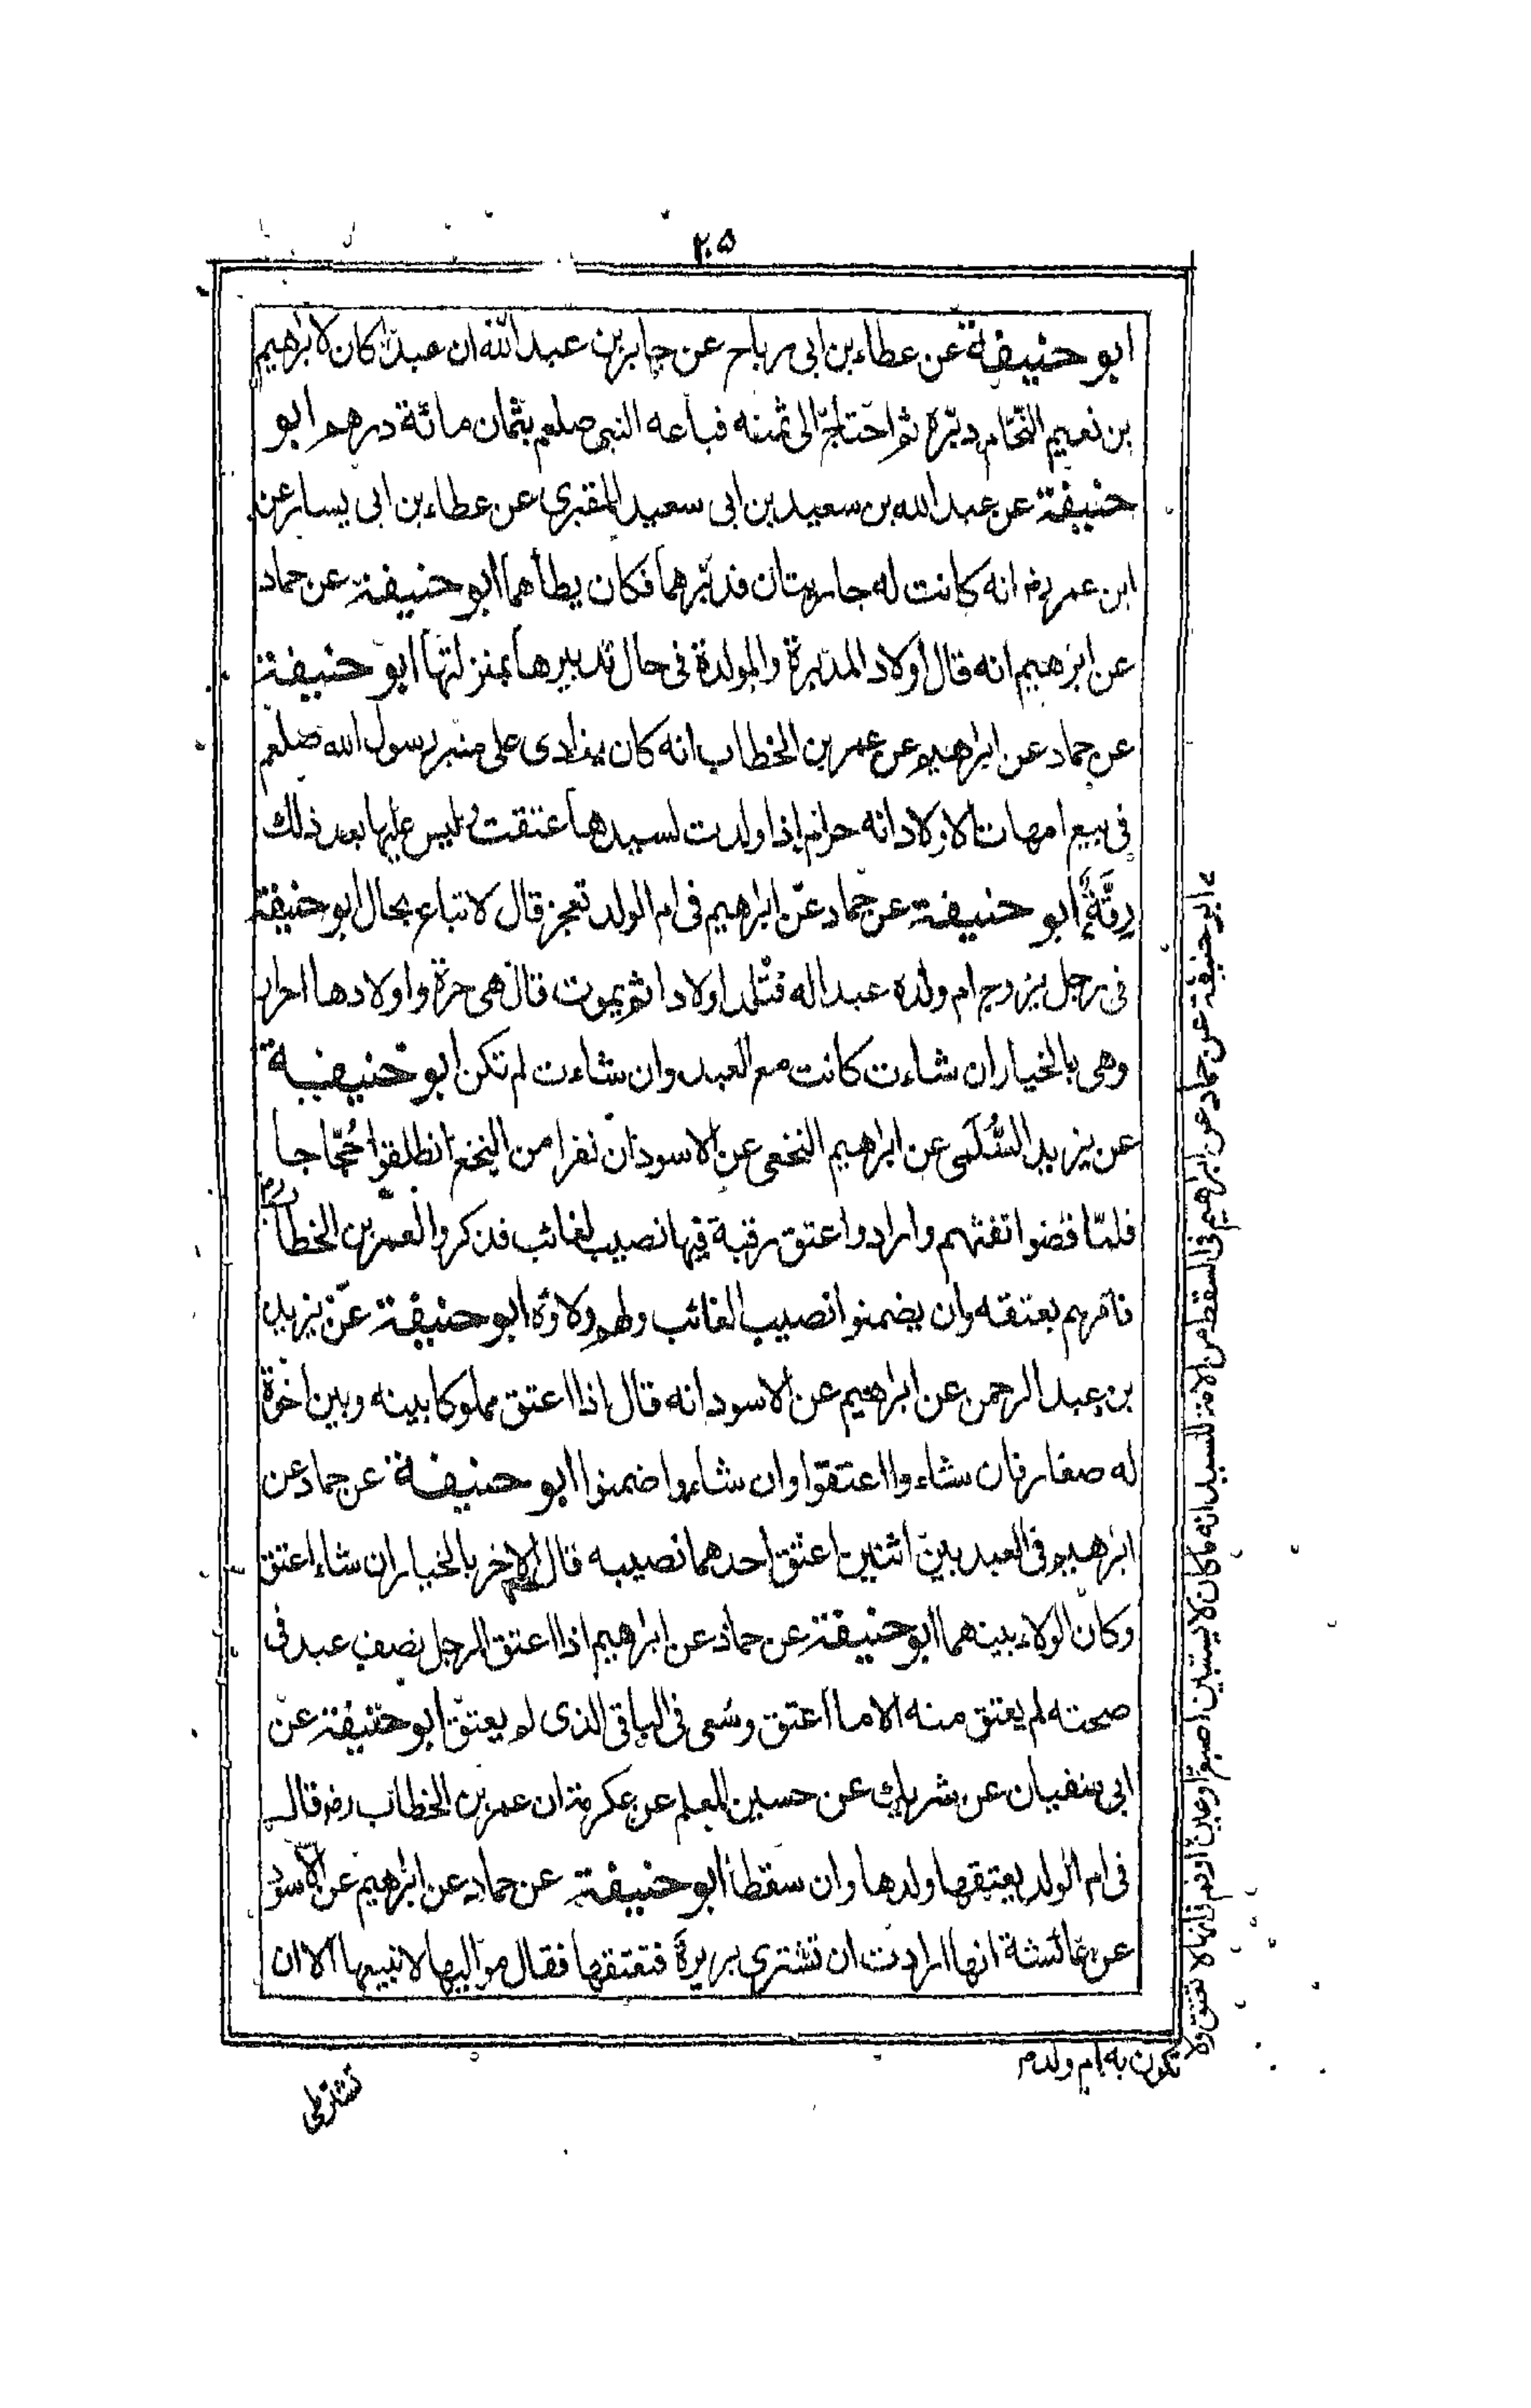 ٢٠٥
ابو حنيفة عن عطاء بن ابى رباح عن جابر بن عبد الله ان عبدا كان لابرهيم
بن نعيم النحام دبره ثم احتاج الى ثمنه فباعه النبى صلعم بثمان مائة درهم ابو
حنيفة عن عبد الله بن سعيد بن ابى سعيد المقبرى عن عطاء بن ابى يسار عن
ابن عمر رضـ انه كانت له جاريتان فدبرهما فكان يطأهما ابو حنيفة عن حماد
عن ابرهيم انه قال اولاد المدبرة والمولدة فى حال تدبيرها بمنزلتها ابو حنيفة
عن حماد عن ابراهيم عن عمر بن الخطاب انه كان ينادى على منبر رسول الله صلعم
فى بيع امهات الاولاد انه حرام اذا ولدت لسيدها عتقت وليس عليها بعد ذلك
رِقَّةٌ ابو حنيفة عن حماد عن ابراهيم فى ام الولد تفجر قال لا تباع بحال ابو حنيفة
فى رجل يزوج ام ولده عبدا له فتلد اولادا ثم يموت قال هى حرة واولادها احرار
وهى بالخيار ان شاءت كانت مع العبد وان شاءت لم تكن ابو حنيفة
عن يزيد السُّلَمى عن ابراهيم النخعى عن الاسود ان نفرا من النخع انطلقوا حُجّاجا
فلمّا قضوا تفثهم وارادوا عتق رقبة فيها نصيب لغائب فذكروا لعمر بن الخطاب رضـ
فامرهم بعتقه وان يضمنوا نصيب الغائب ولهم ولاؤه ابو حنيفة عن يزيد
بن عبد الرحمن عن ابراهيم عن الاسود انه قال اذا اعتق مملوكا بينه وبين اخوة
له صغار فان شاءوا اعتقوا وان شاءوا ضمنوا ابو حنيفة عن حماد عن
ابرهيم فى العبد بين اثنين اعتق احدهما نصيبه قال الاخر بالخيار ان شاء اعتق
وكان الولاء بينهما ابو حنيفة عن حماد عن ابراهيم اذا اعتق الرجل نصف عبد فى
صحته لم يعتق منه الا ما اعتق وسُعى فى الباقى الذى لم يعتق ابو حنيفة عن
ابى سفيان عن شريك عن حسين المعلم عن عكرمة ان عمر بن الخطاب رضـ قال
فى ام الولد يعتقها ولدها وان سقطا ابو حنيفة عن حماد عن ابرهيم عن الاسود
عن عائشة انها ارادت ان تشترى بريرة فتعتقها فقال مواليها لا نبيعها الا ان
ابو حنيفة عن حماد عن ابراهيم فى السقط من الامة للسيد انه ما كان لا يستبين اصبع او عين او فم فانها لا تعتق ولا
تكون به ام ولد م
تشترطى